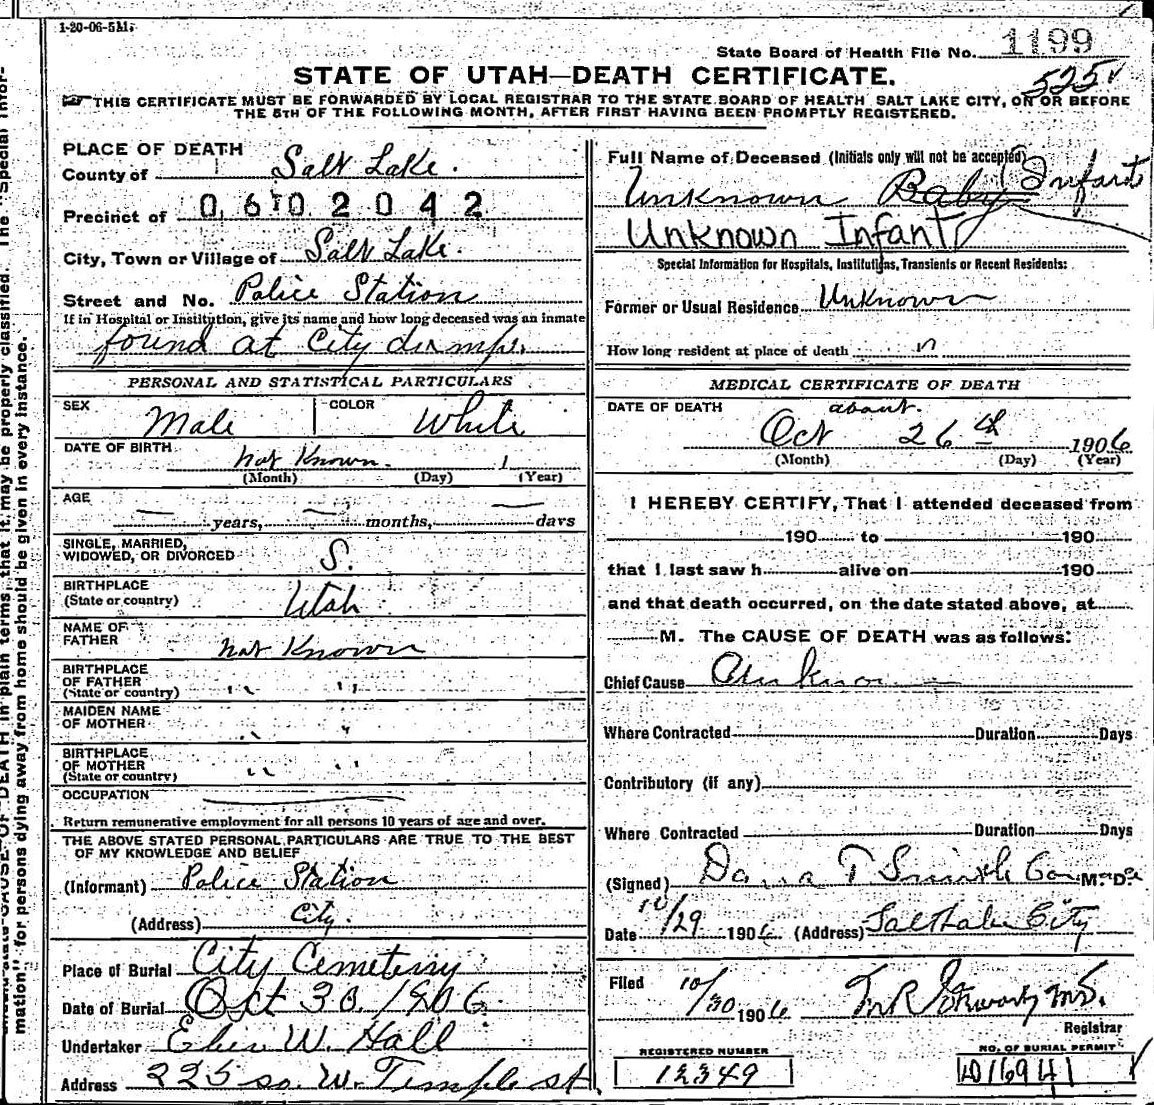 1-20-06-5M.
State Board of Health File No. 1199
STATE OF UTAH—DEATH CERTIFICATE.
525 ✓
THIS CERTIFICATE MUST BE FORWARDED BY LOCAL REGISTRAR TO THE STATE BOARD OF HEALTH, SALT LAKE CITY, ON OR BEFORE
THE 5TH OF THE FOLLOWING MONTH, AFTER FIRST HAVING BEEN PROMPTLY REGISTERED.
PLACE OF DEATH
County of Salt Lake.
Precinct of 0602042
City, Town or Village of Salt Lake.
Street and No. Police Station
If in Hospital or Institution, give its name and how long deceased was an inmate
found at City dump.
PERSONAL AND STATISTICAL PARTICULARS
SEX Male COLOR White
DATE OF BIRTH Not Known. 1
(Month) (Day) (Year)
AGE
— years, — months, — days
SINGLE, MARRIED,
WIDOWED, OR DIVORCED S.
BIRTHPLACE
(State or country) Utah
NAME OF
FATHER Not Known
BIRTHPLACE
OF FATHER
(State or country) " "
MAIDEN NAME
OF MOTHER " "
BIRTHPLACE
OF MOTHER
(State or country) " "
OCCUPATION
Return remunerative employment for all persons 10 years of age and over.
THE ABOVE STATED PERSONAL PARTICULARS ARE TRUE TO THE BEST
OF MY KNOWLEDGE AND BELIEF
(Informant) Police Station
(Address) City.
Place of Burial City Cemetery
Date of Burial Oct 30. 1906
Undertaker Eber W. Hall
Address 225 so. W. Temple st.
Full Name of Deceased (Initials only will not be accepted)
Unknown Baby (Infant
Unknown Infant
Special Information for Hospitals, Institutions, Transients or Recent Residents:
Former or Usual Residence Unknown
How long resident at place of death "
MEDICAL CERTIFICATE OF DEATH
DATE OF DEATH about.
Oct 26 th 1906
(Month) (Day) (Year)
I HEREBY CERTIFY, That I attended deceased from
190 to 190
that I last saw h alive on 190
and that death occurred, on the date stated above, at
M. The CAUSE OF DEATH was as follows:
Chief Cause Unknown
Where Contracted Duration Days
Contributory (if any)
Where Contracted Duration Days
(Signed) Dana T Smith M. D.
Date 10/29 1906 (Address) Salt Lake City
Filed 10/30 1906 M.D.
Registrar
REGISTERED NUMBER
12349
NO. OF BURIAL PERMIT
D16941
mation" for persons dying away from home should be given in every instance.